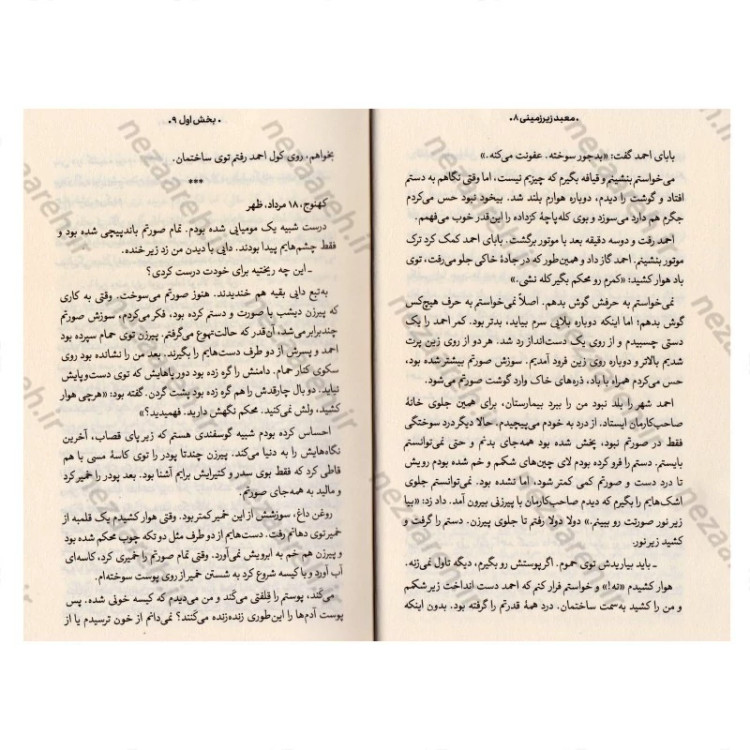 • معبد زیرزمینی ۸۰
بابای احمد گفت: «بدجور سوخته. عفونت می‌کنه.»
می‌خواستم بنشینم و قیافه بگیرم که چیزیم نیست، اما وقتی نگاهم به دستم
افتاد و گوشت را دیدم، دوباره هوارم بلند شد. بیخود نبود حس می‌کردم
جگرم هم دارد می‌سوزد و بوی کله‌پاچهٔ کزداده را این‌قدر خوب می‌فهمم.
احمد رفت و دوسه دقیقه بعد با موتور برگشت. بابای احمد کمک کرد ترک
موتور بنشینم. احمد گاز داد و همین‌طور که در جادهٔ خاکی جلو می‌رفت، توی
باد هوار کشید: «کمرم رو محکم بگیر کله نشی.»
نمی‌خواستم به حرفش گوش بدهم. اصلاً نمی‌خواستم به حرف هیچ‌کس
گوش بدهم؛ اما اینکه دوباره بلایی سرم بیاید، بدتر بود. کمر احمد را یک
دستی چسبیدم و از روی یک دست‌انداز رد شد. هر دو از روی زین پرت
شدیم بالاتر و دوباره روی زین فرود آمدیم. سوزش صورتم بیشتر شده بود،
حس می‌کردم همراه با باد، ذره‌های خاک وارد گوشت صورتم می‌شود.
احمد شهر را بلد نبود من را ببرد بیمارستان، برای همین جلوی خانهٔ
صاحب‌کارمان ایستاد. از درد به خودم می‌پیچیدم. حالا دیگر درد سوختگی
فقط در صورتم نبود، پخش شده بود همه‌جای بدنم و حتی نمی‌توانستم
بایستم. دستم را فرو کرده بودم لای چین‌های شکمم و خم شده بودم رویش
تا درد دست و صورتم کمی کمتر شود، اما نشده بود. نمی‌توانستم جلوی
اشک‌هایم را بگیرم که دیدم صاحب‌کارمان با پیرزنی بیرون آمد. داد زد: «بیا
زیر نور صورتت رو ببینم.» دولا دولا رفتم تا جلوی پیرزن. دستم را گرفت و
کشید زیر نور.
ـ باید بیاریدش توی حموم. اگر پوستش رو بگیرم، دیگه تاول نمی‌زنه.
هوار کشیدم «نه!» و خواستم فرار کنم که احمد دست انداخت زیر شکم
و من را کشید به‌سمت ساختمان. درد همهٔ قدرتم را گرفته بود. بدون اینکه
• بخش اول ۹۰
بخواهم، روی کول احمد رفتم توی ساختمان.
***
کهنوج، ۱۸ مرداد، ظهر
درست شبیه یک مومیایی شده بودم. تمام صورتم باندپیچی شده بود و
فقط چشم‌هایم پیدا بودند. دایی با دیدن من زد زیر خنده.
ـ این چه ریختیه برای خودت درست کردی؟
به‌تبع دایی بقیه هم خندیدند. هنوز صورتم می‌سوخت. وقتی به کاری
که پیرزن دیشب با صورت و دستم کرده بود، فکر می‌کردم، سوزش صورتم
چندبرابر می‌شد، آن‌قدر که حالت‌تهوع می‌گرفتم. پیرزن توی حمام سپرده بود
احمد و پسرش از دو طرف دست‌هایم را بگیرند. بعد من را نشانده بود روی
سکوی کنار حمام. دامنش را گره زده بود دور پاهایش که توی دست‌وپایش
نیاید. دو بال چارقدش را هم گره زده بود پشت گردن. گفته بود: «هرچی هوار
کشید، ولش نمی‌کنید. محکم نگهش دارید. فهمیدید؟»
احساس کرده بودم شبیه گوسفندی هستم که زیر پای قصاب، آخرین
نگاه‌هایش را به دنیا می‌کند. پیرزن چندتا پودر را توی کاسهٔ مسی با هم
قاطی کرد که فقط بوی سدر و کتیرایش برایم آشنا بود. بعد پودر را خمیر کرد
و مالید به همه‌جای صورتم.
روغن داغ، سوزشش از این خمیر کمتر بود. وقتی هوار کشیدم یک قلمبه از
خمیر توی دهانم رفت. دست‌هایم از دو طرف مثل دو تکه چوب محکم شده بود
و پیرزن هم خم به ابرویش نمی‌آورد. وقتی تمام صورتم را خمیری کرد، کاسه‌ای
آب آورد و با کیسه شروع کرد به شستن خمیر از روی پوست سوخته‌ام.
می‌کند، پوستم را قِلفتی می‌کَند و من می‌دیدم که کیسه خونی شده. پس
پوست آدم‌ها را این‌طوری زنده‌زنده می‌کَنند؟ نمی‌دانم از خون ترسیدم یا از
nezaareh.ir